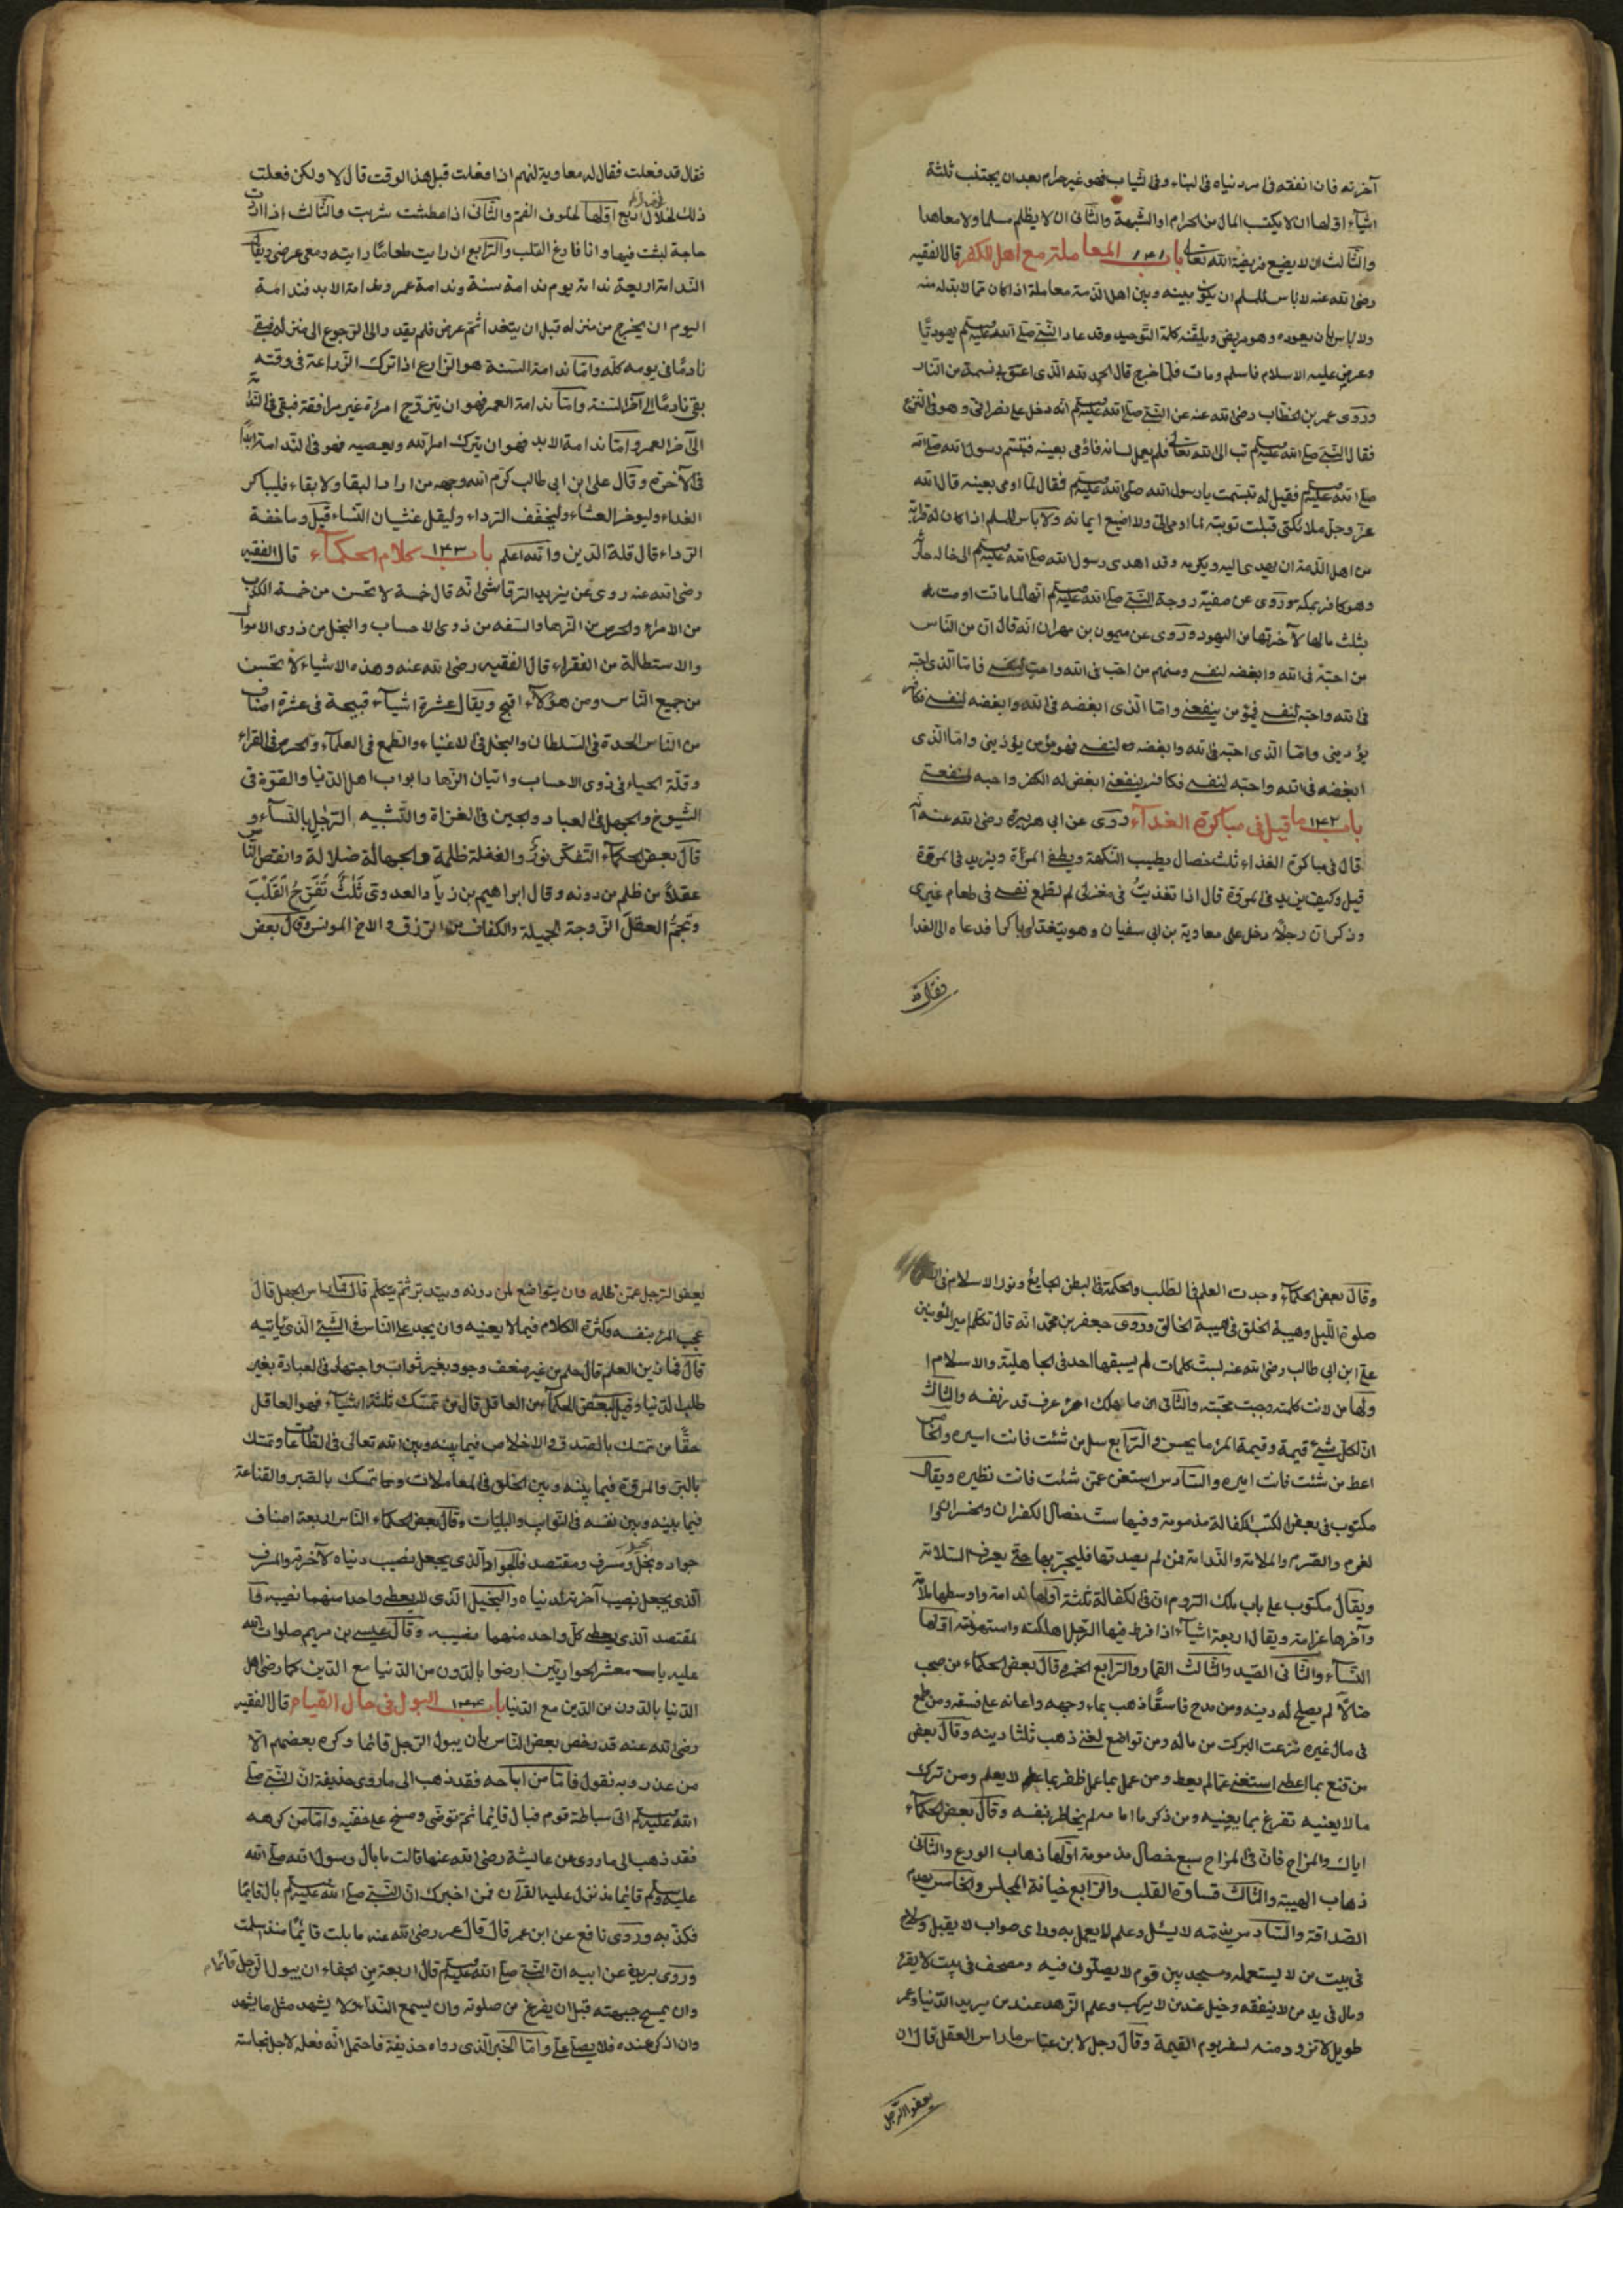 آخرته فان انفقه فى امر دنياه فى البناء وفى الثياب فهو غير حرام بعد ان يجتنب ثلثة
اشياء اولها ان لا يكتسب المال من الحرام او الشبهة والثانى ان لا يظلم مسلما ولا معاهدا
والثالث ان لا يضيع فريضة الله تعالى باب ١٤١ المعاملة مع اهل الكفر قال الفقيه
رضى الله عنه لا باس للمسلم ان يكون بينه وبين اهل الذمة معاملة اذا كان مما لابد له منه
ولا باس بان يعوده وهو مريض ويلقنه كلمة التوحيد وقد عاد النبى صلى الله عليه وسلم يهوديا
وعرض عليه الاسلام فاسلم ومات فلما خرج قال الحمد لله الذى اعتق بى نسمة من النار
وروى عمر بن الخطاب رضى الله عنه عن النبى صلى الله عليه وسلم انه دخل على نصرانى وهو فى النزع
فقال النبى صلى الله عليه وسلم تب الى الله تعالى فلم يعمل لسانه فاومى بعينه فتبسم رسول الله صلى الله
صلى الله عليه وسلم فقيل له تبسمت يا رسول الله صلى الله عليه وسلم فقال لما اومى بعينه قال الله
عز وجل ملائكتى قبلت توبته بما اومى الى ولا اضيع ايمانه ولا باس للمسلم اذا كان له قرابة
من اهل الذمة ان يهدى اليه ويكرمه وقد اهدى رسول الله صلى الله عليه وسلم الى خاله
وهو كافر بمكة وروى عن صفية زوجة النبى صلى الله عليه وسلم انها لما ماتت اوصت
بثلث مالها لآخرتها من اليهود وروى عن ميمون بن مهران انه قال ان من الناس
من احبه فى الله وابغضه لنفسى ومنهم من احب فى الله واحبه لنفسى فاما الذى احبه
فى الله واحبه لنفسى فمؤمن ينفعنى واما الذى ابغضه فى الله وابغضه لنفسى فكافر
يؤذينى واما الذى احبه فى الله وابغضه لنفسى فهو مؤمن يؤذينى واما الذى
ابغضه فى الله واحبه لنفسى فكافر ينفعنى ابغض له الكفر واحبه لمنفعتى
باب ١٤٢ ما قيل فى مباكرة الغداء روى عن ابى هريرة رضى الله عنه انه
قال فى مباكرة الغداء ثلث خصال يطيب النكهة ويطفئ المرة ويزيد فى المروة
قيل وكيف يزيد فى المروة قال اذا تغذيت فى منزلى لم تطمع نفسى فى طعام غيرى
وذكر ان رجلا دخل على معاوية بن ابى سفيان وهو يتغدى باكرا فدعاه الى الغدا
فقال قد
فقال قد فعلت فقال له معاوية لنهم اذا فعلت قبل هذا الوقت قال لا ولكن فعلت
ذلك لخلال اربع اولها لخلوف الفم والثانى اذا عطشت شربت والثالث اذا اردت
حاجة لبثت فيها وانا فارغ القلب والرابع ان رايت طعاما رايته ومعى عرضى ويقال
الندامة اربعة ندامة يوم وندامة سنة وندامة عمر وندامة الابد فندامة
اليوم ان يخرج من منزله قبل ان يتغدا ثم عرض فلم يقدر الى الرجوع الى منزله فبقى
نادما فى يومه كله واما ندامة السنة هو الزارع اذا ترك الزراعة فى وقته
بقى نادما الى آخر السنة واما ندامة العمر فهو ان يتزوج امرأة غير مرافقة فبقى فى الندامة
الى آخر العمر واما ندامة الابد فهو ان يترك امر الله ويعصيه فهو فى الندامة ابدا
فى الآخرة وقال على ابن ابى طالب كرم الله وجهه من اراد البقا ولا بقاء فليباكر
الغداء وليوخر العشاء وليخفف الرداء وليقل غشيان النساء قيل وما خفة
الرداء قال قلة الدين والله اعلم باب ١٤٣ كلام الحكماء قال الفقيه
رضى الله عنه روى عن يزيد الرقاشى انه قال خمسة لا تحسن من خمسة الكذب
من الامراء والحرص من الزهاد والسفه من ذوى الاحساب والبخل من ذوى الاموال
والاستطالة من الفقراء قال الفقيه رضى الله عنه وهذه الاشياء لا تحسن
من جميع الناس ومن هؤلاء اقبح ويقال عشرة اشياء قبيحة فى عشرة اصناف
من الناس الحدة فى السلطان والبخل فى الاغنياء والطمع فى العلماء والحرص فى القراء
وقلة الحياء فى ذوى الاحساب واتيان الزهاد ابواب اهل الدنيا والقوة فى
الشيوخ والجهل فى العباد والجبن فى الغزاة والتشبيه الرجل بالنساء و
قال بعض الحكماء التفكر نور والغفلة ظلمة والجهالة ضلالة وانقص الناس
عقلا من ظلم من دونه وقال ابراهيم بن زياد العدوى ثلث تفرح القلب
وتجم العقل الزوجة الجميلة والكفاف من الرزق والاخ المونس وقال بعض
وقال بعض الحكماء وجدت العلم فى الطلب والحكمة فى البطن الجايع ونور الاسلام فى
صلوة الليل وهيبة الخلق فى هيبة الخالق وروى جعفر بن محمد انه قال تكلم امير المؤمنين
على ابن ابى طالب رضى الله عنه بست كلمات لم يسبقها احد فى الجاهلية والاسلام ا
ولها من لانت كلمته وجبت محبته والثانى ان ما هلك امرء عرف قدر نفسه والثالث
ان لكل شئ قيمة وقيمة المرء ما يحسن والرابع سل من شئت فانت اسيره والخامس
اعط من شئت فانت اميره والسادس استغن عمن شئت فانت نظيره ويقال
مكتوب فى بعض الكتب الكفالة مذمومة وفيها ست خصال الكفران والخسران وا
لغرم والضرر والملامة والندامة فمن لم يصدقها فليجربها حتى يعرف السلامة
ويقال مكتوب على باب ملك الروم ان فى الكفالة ثلثة اولها ندامة واوسطها ملامة
وآخرها غرامة ويقال اربعة اشياء اذا فرط فيها الرجل اهلكته واستهوته اولها
النساء والثانى الصيد والثالث القمار والرابع الخمر وقال بعض الحكماء من صحب
ضالا لم يصلح له دينه ومن مدح فاسقا ذهب بماء وجهه واعانه على فسقه ومن طمع
فى مال غيره نزعت البركت من ماله ومن تواضع لغنى ذهب ثلثا دينه وقال بعض
من قنع بما اعطى استغنى عما لم يعط ومن عمل بما علم ظفر بما لا يعلم ومن ترك
ما لا يعنيه تفرغ بما يعنيه ومن ذكر ما امامه لم يخاطر بنفسه وقال بعض الحكماء
اياك والمزاح فان فى المزاح سبع خصال مذمومة اولها ذهاب الورع والثانى
ذهاب الهيبة والثالث قساوة القلب والرابع خيانة المجلس والخامس يهدم
الصداقة والسادس لا يسئل وعلم لا يعمل به وراى صواب لا يقبل وسلاح
فى بيت من لا يستعمله ومسجد بين قوم لا يصلون فيه ومصحف فى بيت لا يقرء
ومال فى يد من لا ينفقه وخيل عند من لا يركب وعلم الزهد عند من يريد الدنيا وعمر
طويل لا تزود منه لسفر يوم القيمة وقال رجل لابن عباس ما راس العقل قال ان
يعفوا الرجل
يعفوا الرجل عمن ظلمه وان يتواضع لمن دونه ويتدبر ثم يتكلم قال فما راس الجهل قال
عجب المرء بنفسه وكثرة الكلام فيما لا يعنيه وان يجد على الناس فى الشئ الذى ياتيه
قال فما زين العلم قال حلم من غير ضعف وجود بغير ثواب واجتهاد فى العبادة بغير
طلب الدنيا وقيل لبعض الحكماء من العاقل قال من تمسك ثلثة اشياء فهو العاقل
حقا من تمسك بالصدق والاخلاص فيما بينه وبين الله تعالى فى الطاعات وتمسك
بالبر والمروة فيما بينه وبين الخلق فى المعاملات وتمسك بالصبر والقناعة
فيما بينه وبين نفسه فى النوائب والبليات وقال بعض الحكماء الناس اربعة اصناف
جواد وبخيل ومسرف ومقتصد فالجواد الذى يجعل نصيب دنياه لآخرته والمسرف
الذى يجعل نصيب آخرته لدنياه والبخيل الذى لا يعطى واحدا منهما نصيبه فا
لمقتصد الذى يعطى كل واحد منهما نصيبه وقال عيسى بن مريم صلوات الله
عليه يا معشر الحواريين ارضوا بالدون من الدنيا مع الدين كما رضى اهل
الدنيا بالدون من الدين مع الدنيا باب ١٤٤ البول فى حال القيام قال الفقيه
رضى الله عنه قد رخص بعض الناس بان يبول الرجل قائما وكره بعضهم الا
من عذر وبه نقول فاما من اباحه فقد ذهب الى ما روى حذيفة ان النبى صلى
الله عليه وسلم اتى سباطة قوم فبال قائما ثم توضى ومسح على خفيه واما من كرهه
فقد ذهب الى ما روى عن عايشة رضى الله عنها قالت ما بال رسول الله صلى الله
عليه وسلم قائما مذ نزل عليه القرآن فمن اخبرك ان النبى صلى الله عليه وسلم بال قايما
فكذبه وروى نافع عن ابن عمر قال قال عمر رضى الله عنه ما بلت قايما منذ اسلمت
وروى بريدة عن ابيه ان النبى صلى الله عليه وسلم قال اربعة من الجفاء ان يبول الرجل قائما
وان يمسح جبهته قبل ان يفرغ من صلوته وان يسمع النداء ولا يشهد مثل ما يشهد
وان اذكر عنده فلا يصلى على واما الخبر الذى رواه حذيفة فاحتمل انه فعله لاجل نجاسة